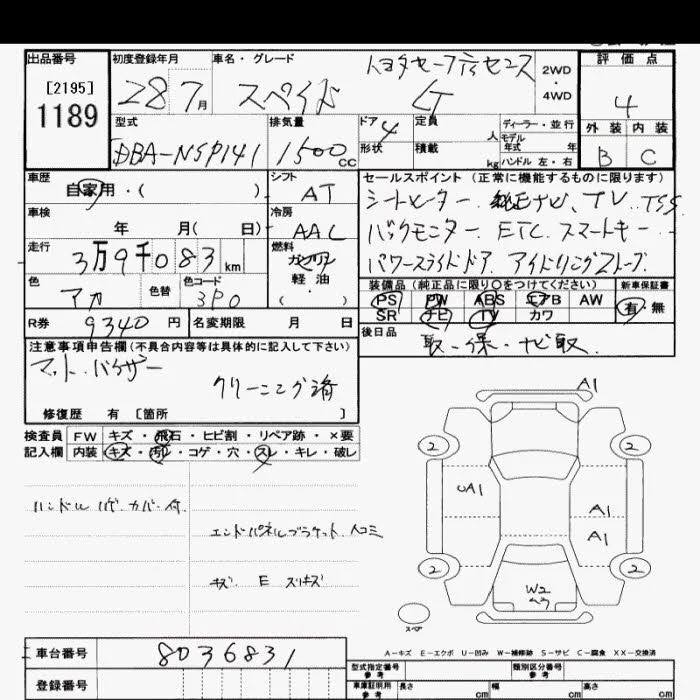 出品番号 初度登録年月 車名・グレード トヨタセーフティセンス 2WD・4WD 評価点
[2195]
1189 28 7月 スペイド G 4
型式 排気量 ドア 4 定員 人 ディーラー・並行 外装 内装
モデル年式 年
DBA-NSP141 1500cc 形状 積載 kg ハンドル 左・右 B C
車歴 シフト セールスポイント (正常に機能するものに限ります)
自家用・( ) AT シートヒーター. 純正ナビ、TV. TSS
車検 冷房
年 月( 日) AAC バックモニター. ETC. スマートキー
走行 燃料
3万9千083km ガソリン パワースライドドア. アイドリングストップ
軽油
色 色替 色コード ・ 装備品 (純正品に限り○をつけてください) 新車保証書
アカ 3P0 ( ) PS PW ABS エアB AW 有・無
SR ナビ TV カワ
R券 9340円 名変期限 月 日 後日品 取・保・ナビ取.
注意事項申告欄 (不具合内容等は具体的に記入して下さい)
マット.バイザー
クリーニング済
修復歴 有 [箇所 ]
検査員 FW キズ・飛石・ヒビ割・リペア跡・×要
記入欄 内装 キズ・汚レ・コゲ・穴・スレ・キレ・破レ
A1
2 2
ハンドル カバー付
UA1 A1
エンドパネルブラケット. 凹コミ A1
2 2
キズ E スリキズ
W2
スペア
車台番号 8036831
A-キズ E-エクボ U-凹み W-補修跡 S-サビ C-腐食 XX-交換済
型式指定番号 参考 類別区分番号 参考
登録番号 車庫証明用 参考 長さ cm 幅 cm 高さ cm